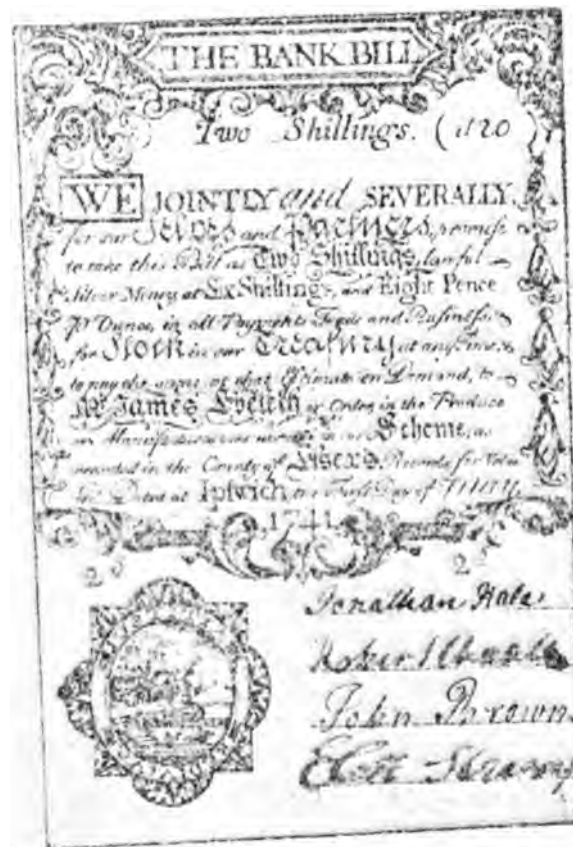 THE BANK BILL
Two Shillings. (
WE JOINTLY and SEVERALLY,
for our Selves and Partners, promise
to take this Bill as Two Shillings, lawful
Silver Money, at Six Shillings, and Eight Pence
Ounce, in all Payments, Trade and Business,
for Stock in our Treasury at any Time,
to pay the same at that Estimate on Demand, to
Mr James Eveleth or Order, in the Produce
or Manufactures in our Scheme; as
recorded in the County of Essex's Records, for
Dated at Ipswich the First Day of May,
1741
Jonathan Hale
John Brown